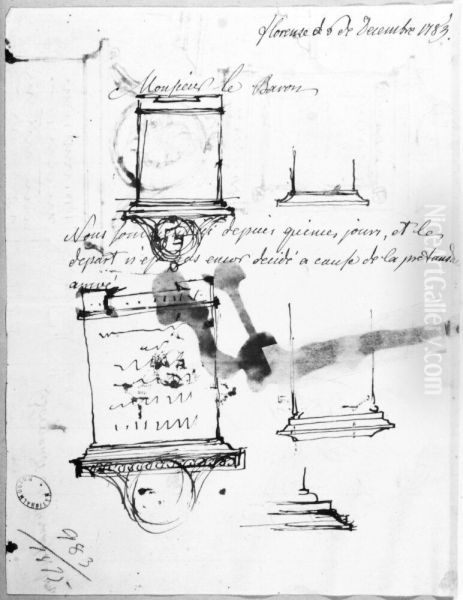 florence d 6 de Decembre 1783.
Monsieur le Baron
Nous depuis quelques jours, et le
depart n'est pas encor decidé a cause de la
arrivé
983
1875
NATIONALMUSEUM
NiceArtGallery.com